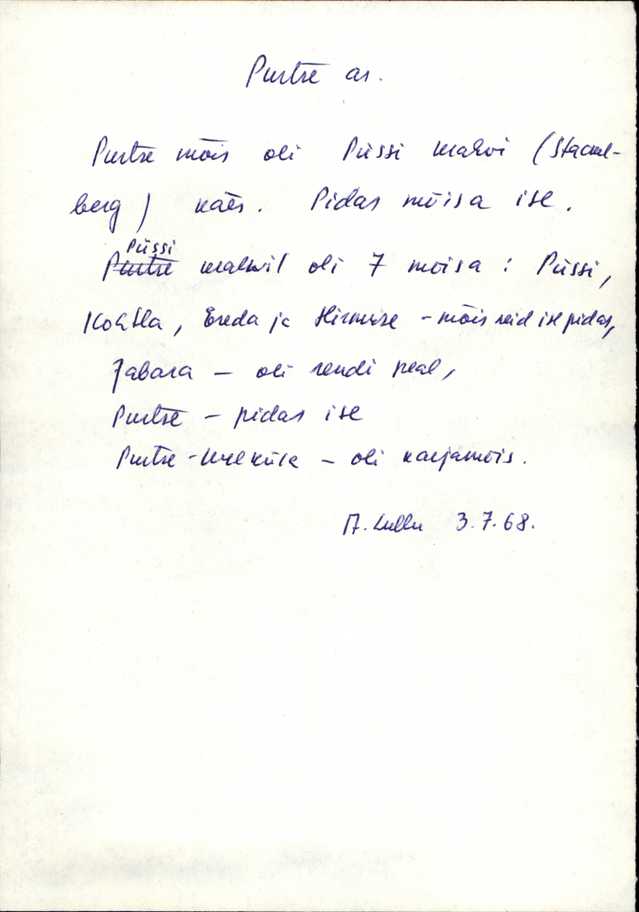 Purtse as.
Purtse mõis oli Püssi mahvi (Stackel-
berg) käes. Pidas mõisa ise.
Püssi
Purtse mahvil oli 7 mõisa: Püssi,
Kohtla, Ereda ja Hirmuse - mõis neid ise pidas,
Jabara – oli rendi peal,
Purtse – pidas ise
Purtse - – oli karjamõis.
A. Lullu 3.7.68.